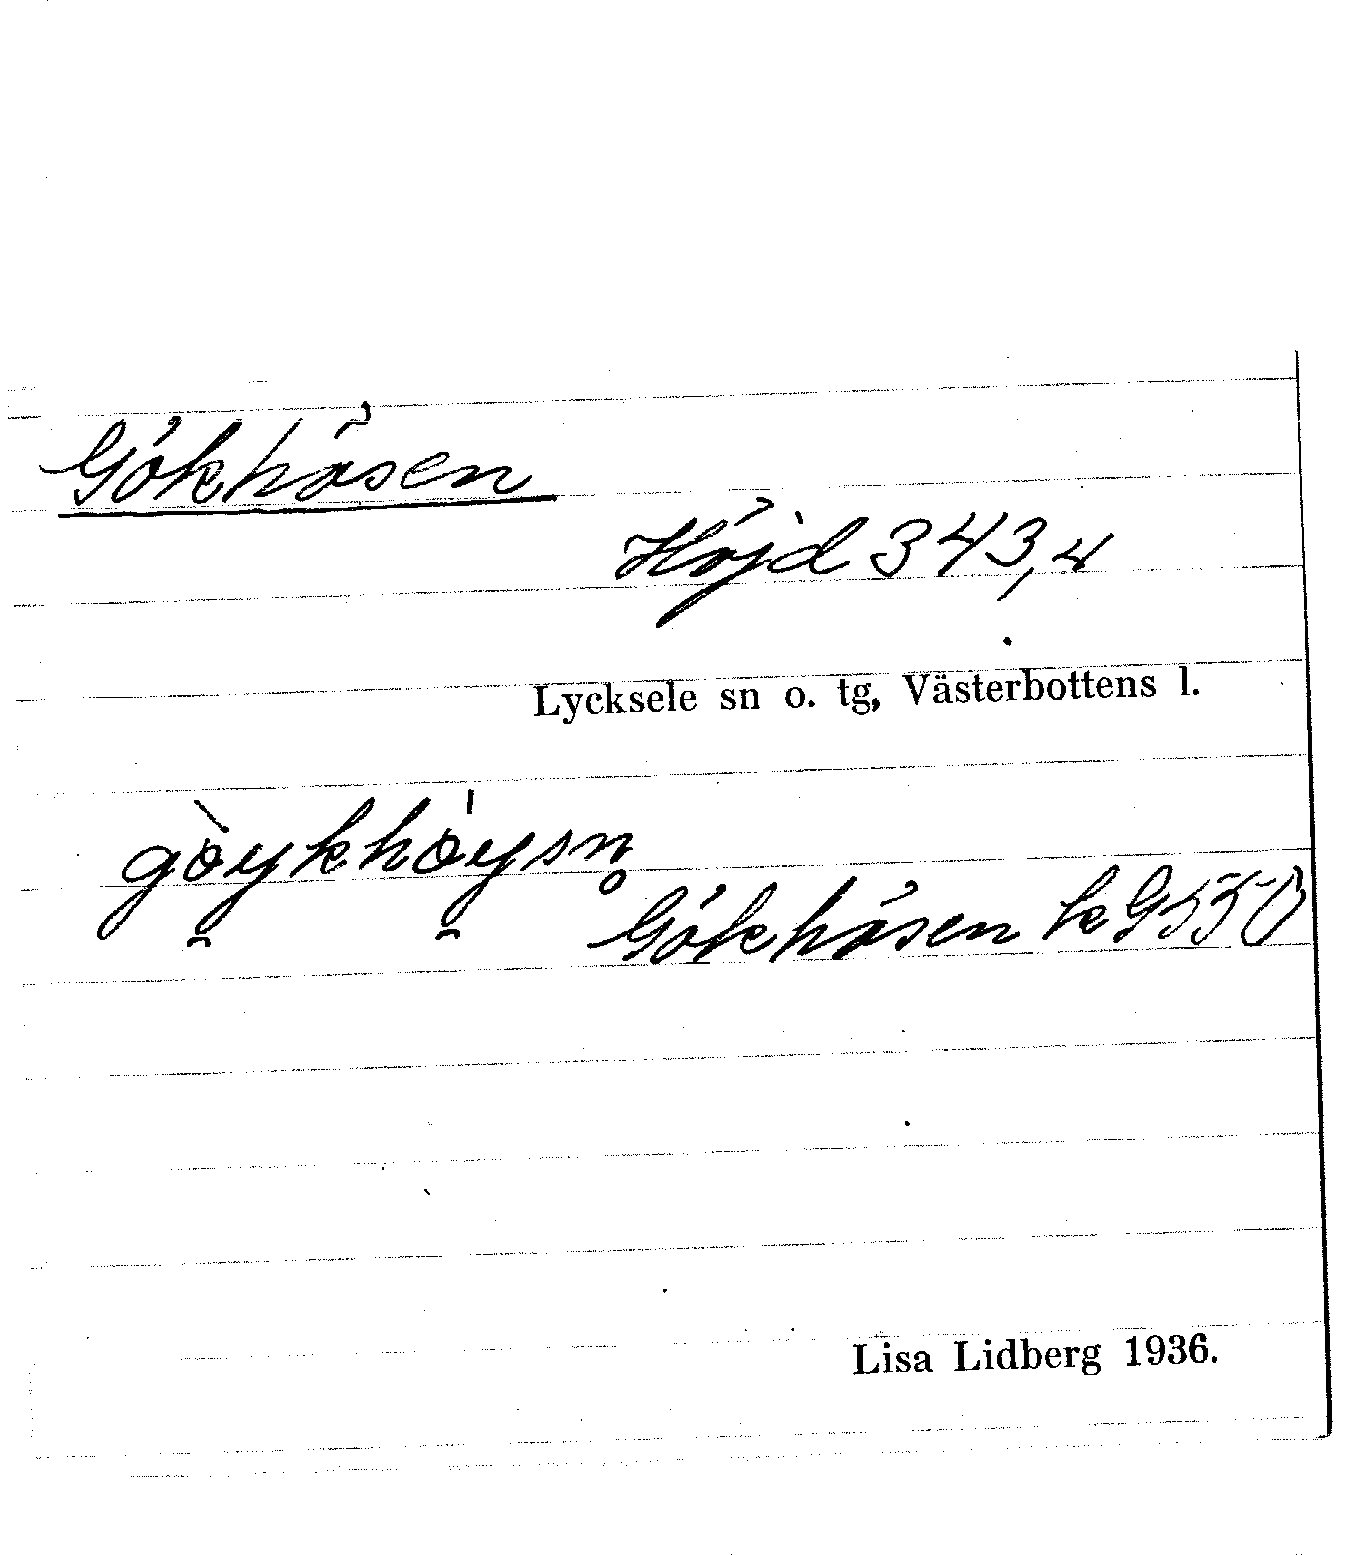 Gökhösen
Höjd 343,4
Lycksele sn o. tg, Västerbottens l.
göykhöysn̥
Gökhösen k G550
Lisa Lidberg 1936.